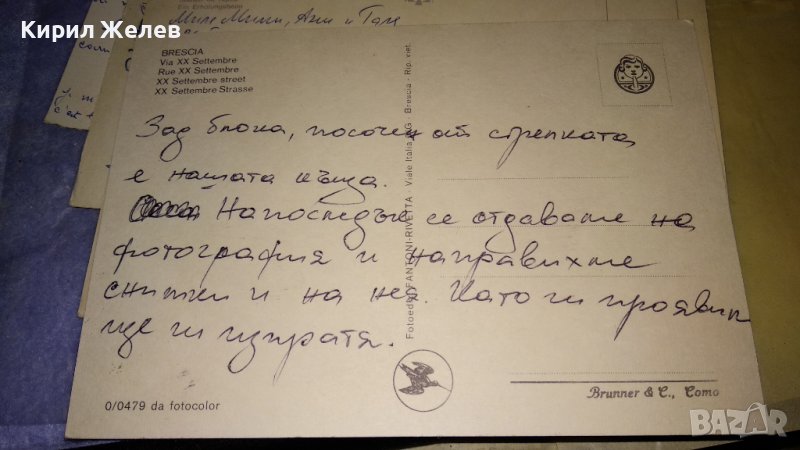 Кирил Желев
Ein Erholungsheim
Мили Мими, Ани и
BRESCIA
Via XX Settembre
Rue XX Settembre
XX Settembre street
XX Settembre Strasse
Зад блока, посочен от стрелката
е нашата къща.
Напоследък се отдаваме на
фотография и направихме
снимки и на нея. Като ги проявим
ще ги изпратя.
Fotoedit. FANTONI-RIVETTA Viale Italia Brescia - Rip. viet.
0/0479 da fotocolor
Brunner & C., Como
BAZAR
bg